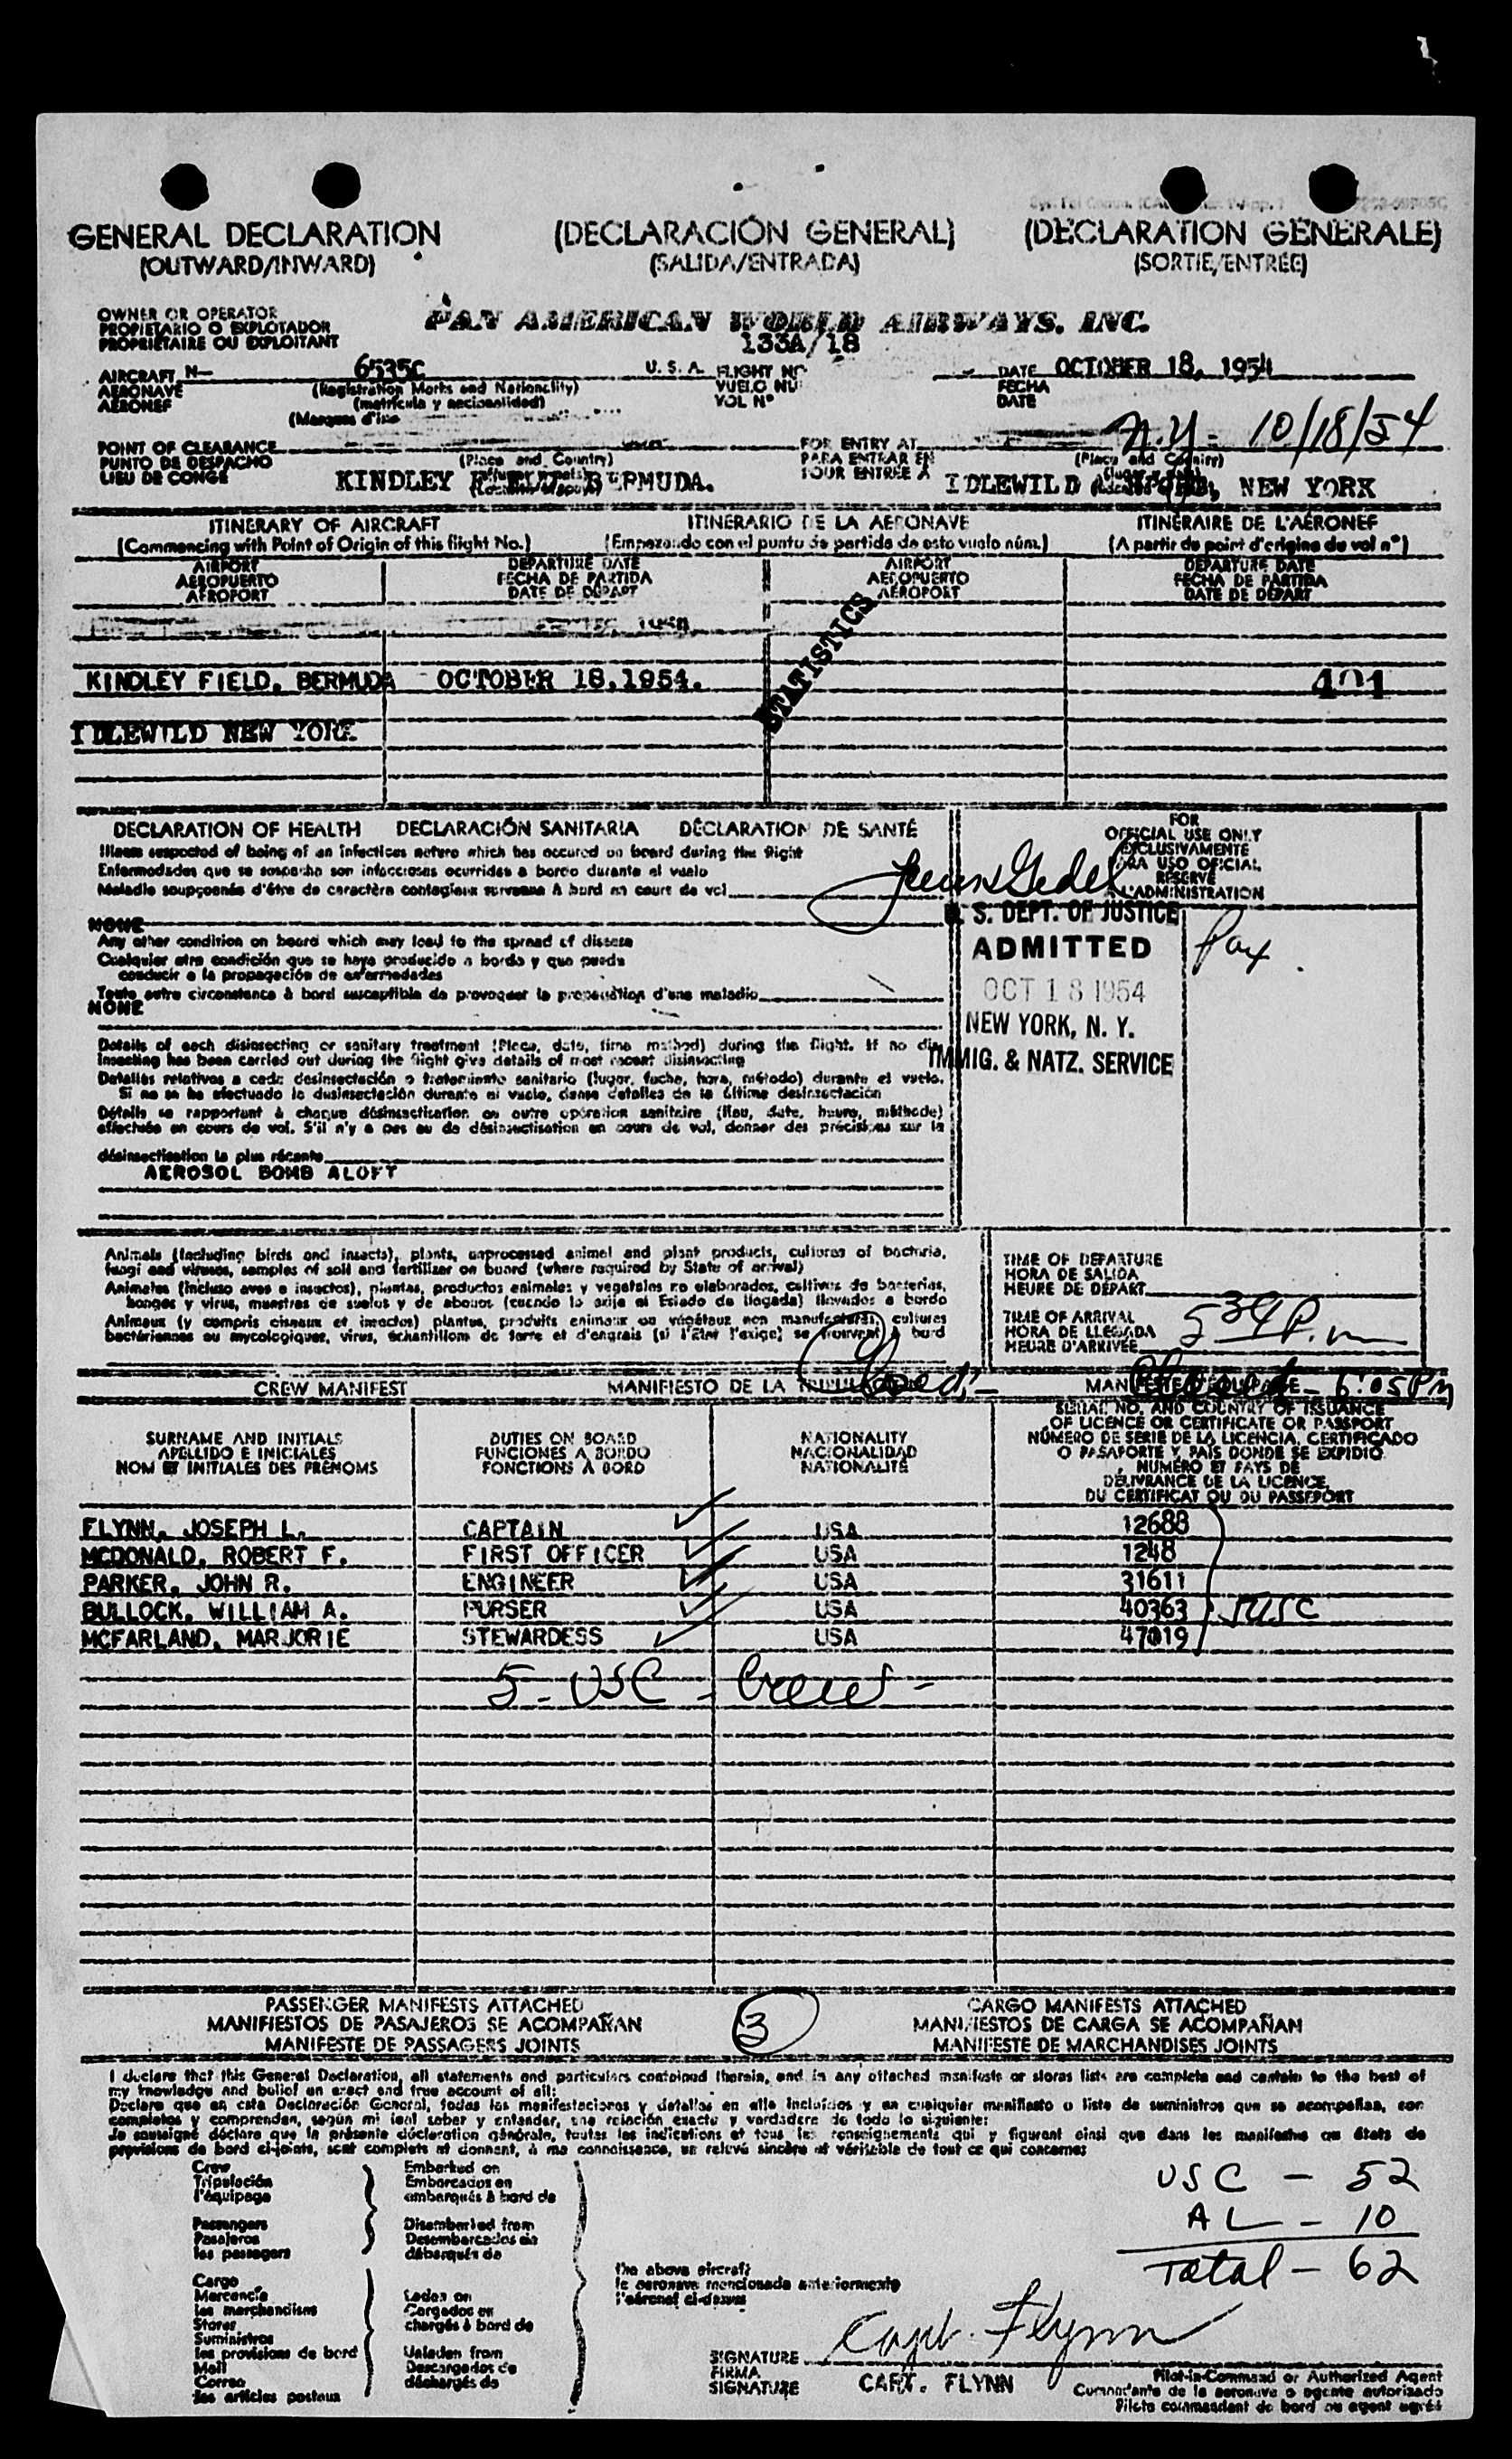 GENERAL DECLARATION (DECLARACIÓN GENERAL) (DÉCLARATION GÉNÉRALE)
(OUTWARD/INWARD) (SALIDA/ENTRADA) (SORTIE/ENTRÉE)
OWNER OR OPERATOR
PROPIETARIO O EXPLOTADOR
PROPRIÉTAIRE OU EXPLOITANT
PAN AMERICAN WORLD AIRWAYS, INC.
133A/18
AIRCRAFT N- 6535C U.S.A. FLIGHT NO DATE OCTOBER 18, 1954
AERONAVE (Registration Marks and Nationality) VUELO NÚ FECHA
AÉRONEF (matrícula y nacionalidad) VOL Nº DATE
(Marques d'im
N.Y. - 10/18/54
POINT OF CLEARANCE FOR ENTRY AT
PUNTO DE DESPACHO (Place and Country) PARA ENTRAR EN (Place and Country)
LIEU DE CONGÉ KINDLEY FIELD, BERMUDA. POUR ENTRÉE À IDLEWILD NEW YORK
ITINERARY OF AIRCRAFT ITINERARIO DE LA AERONAVE ITINÉRAIRE DE L'AÉRONEF
(Commencing with Point of Origin of this flight No.) (Empezando con el punto de partida de este vuelo núm.) (A partir du point d'origine du vol nº)
AIRPORT DEPARTURE DATE AIRPORT DEPARTURE DATE
AEROPUERTO FECHA DE PARTIDA AEROPUERTO FECHA DE PARTIDA
AÉROPORT DATE DE DÉPART AÉROPORT DATE DE DÉPART
STATISTICS
KINDLEY FIELD, BERMUDA OCTOBER 18, 1954. 401
IDLEWILD NEW YORK
DECLARATION OF HEALTH DECLARACIÓN SANITARIA DÉCLARATION DE SANTÉ
Illness suspected of being of an infectious nature which has occured on board during the flight
Enfermedades que se sospecha son infecciosas ocurridas a bordo durante el vuelo
Maladie soupçonnée d'être de caractère contagieux survenue à bord en cours de vol
NONE
Any other condition on board which may lead to the spread of disease
Cualquier otra condición que se haya producido a bordo y que pueda
conducir a la propagación de enfermedades
Toute autre circonstance à bord susceptible de provoquer la propagation d'une maladie
NONE
Details of each disinsecting or sanitary treatment (Place, date, time method) during the flight. If no dis-
insecting has been carried out during the flight give details of most recent disinsecting
Detalles relativos a cada desinsectación o tratamiento sanitario (lugar, fecha, hora, método) durante el vuelo.
Si no se ha efectuado la desinsectación durante el vuelo, dense detalles de la última desinsectación
Détails se rapportant à chaque désinsectisation ou autre opération sanitaire (lieu, date, heure, méthode)
effectuée en cours de vol. S'il n'y a pas eu de désinsectisation en cours de vol, donner des précisions sur la
désinsectisation la plus récente
AEROSOL BOMB ALOFT
FOR
OFFICIAL USE ONLY
EXCLUSIVAMENTE
PARA USO OFICIAL
RÉSERVÉ
À L'ADMINISTRATION
U. S. DEPT. OF JUSTICE
ADMITTED
OCT 18 1954
NEW YORK, N. Y.
IMMIG. & NATZ. SERVICE
Pax
Animals (including birds and insects), plants, unprocessed animal and plant products, cultures of bacteria,
fungi and viruses, samples of soil and fertilizer on board (where required by State of arrival)
Animales (incluso aves e insectos), plantas, productos animales y vegetales no elaborados, cultivos de bacterias,
hongos y virus, muestras de suelos y de abonos (cuando lo exija el Estado de llegada) llevados a bordo
Animaux (y compris oiseaux et insectes) plantes, produits animaux ou végétaux non manufacturés, cultures
bactériennes ou mycologiques, virus, échantillons de terre et d'engrais (si l'État l'exige) se trouvant à bord
TIME OF DEPARTURE
HORA DE SALIDA
HEURE DE DÉPART
TIME OF ARRIVAL
HORA DE LLEGADA 5 34 P.m
HEURE D'ARRIVÉE
6:05 PM
CREW MANIFEST MANIFIESTO DE LA
SURNAME AND INITIALS DUTIES ON BOARD NATIONALITY SERIAL NO. AND COUNTRY OF ISSUANCE
APELLIDO E INICIALES FUNCIONES A BORDO NACIONALIDAD OF LICENCE OR CERTIFICATE OR PASSPORT
NOM ET INITIALES DES PRÉNOMS FONCTIONS À BORD NATIONALITÉ NÚMERO DE SERIE DE LA LICENCIA, CERTIFICADO
O PASAPORTE Y PAÍS DONDE SE EXPIDIÓ
NUMÉRO ET PAYS DE
DÉLIVRANCE DE LA LICENCE,
DU CERTIFICAT OU DU PASSEPORT
FLYNN, JOSEPH L. CAPTAIN USA 12688
MCDONALD, ROBERT F. FIRST OFFICER USA 1248
PARKER, JOHN R. ENGINEER USA 31611
BULLOCK, WILLIAM A. PURSER USA 40363 5USC
MCFARLAND, MARJORIE STEWARDESS USA 47019
5 - USC - Crew -
PASSENGER MANIFESTS ATTACHED CARGO MANIFESTS ATTACHED
MANIFIESTOS DE PASAJEROS SE ACOMPAÑAN 3 MANIFIESTOS DE CARGA SE ACOMPAÑAN
MANIFESTE DE PASSAGERS JOINTS MANIFESTE DE MARCHANDISES JOINTS
I declare that this General Declaration, all statements and particulars contained therein, and in any attached manifests or stores lists are complete and contain to the best of
my knowledge and belief an exact and true account of all:
Declaro que en esta Declaración General, todas las manifestaciones y detalles en ella incluídos y en cualquier manifiesto o lista de suministros que se acompañan, son
completos y comprenden, según mi leal saber y entender, una relación exacta y verdadera de todo lo siguiente:
Je soussigné déclare que la présente déclaration générale, toutes les indications et tous les renseignements qui y figurent ainsi que dans les manifestes ou états de
provisions de bord ci-joints, sont complets et donnent, à ma connaissance, un relevé sincère et véritable de tout ce qui concerne:
Crew Embarked on
Tripulación Embarcados en
l'équipage embarqués à bord de
Passengers Disembarked from
Pasajeros Desembarcados de
les passagers débarqués de
Cargo
Mercancía Laden on
les marchandises Cargados en
Stores chargés à bord de
Suministros
les provisions de bord Unladen from
Mail Descargados de
Correo déchargés de
les articles postaux
the above aircraft
la aeronave mencionada anteriormente
l'aéronef ci-dessus
USC - 52
AL - 10
Total - 62
Capt. Flynn
SIGNATURE
FIRMA
SIGNATURE
CAPT. FLYNN
Pilot-in-Command or Authorized Agent
Comandante de la aeronave o agente autorizado
Pilote commandant de bord ou agent agréé